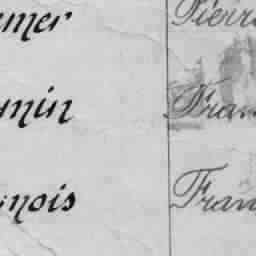 mer Pierr
min Fran
nois Fran